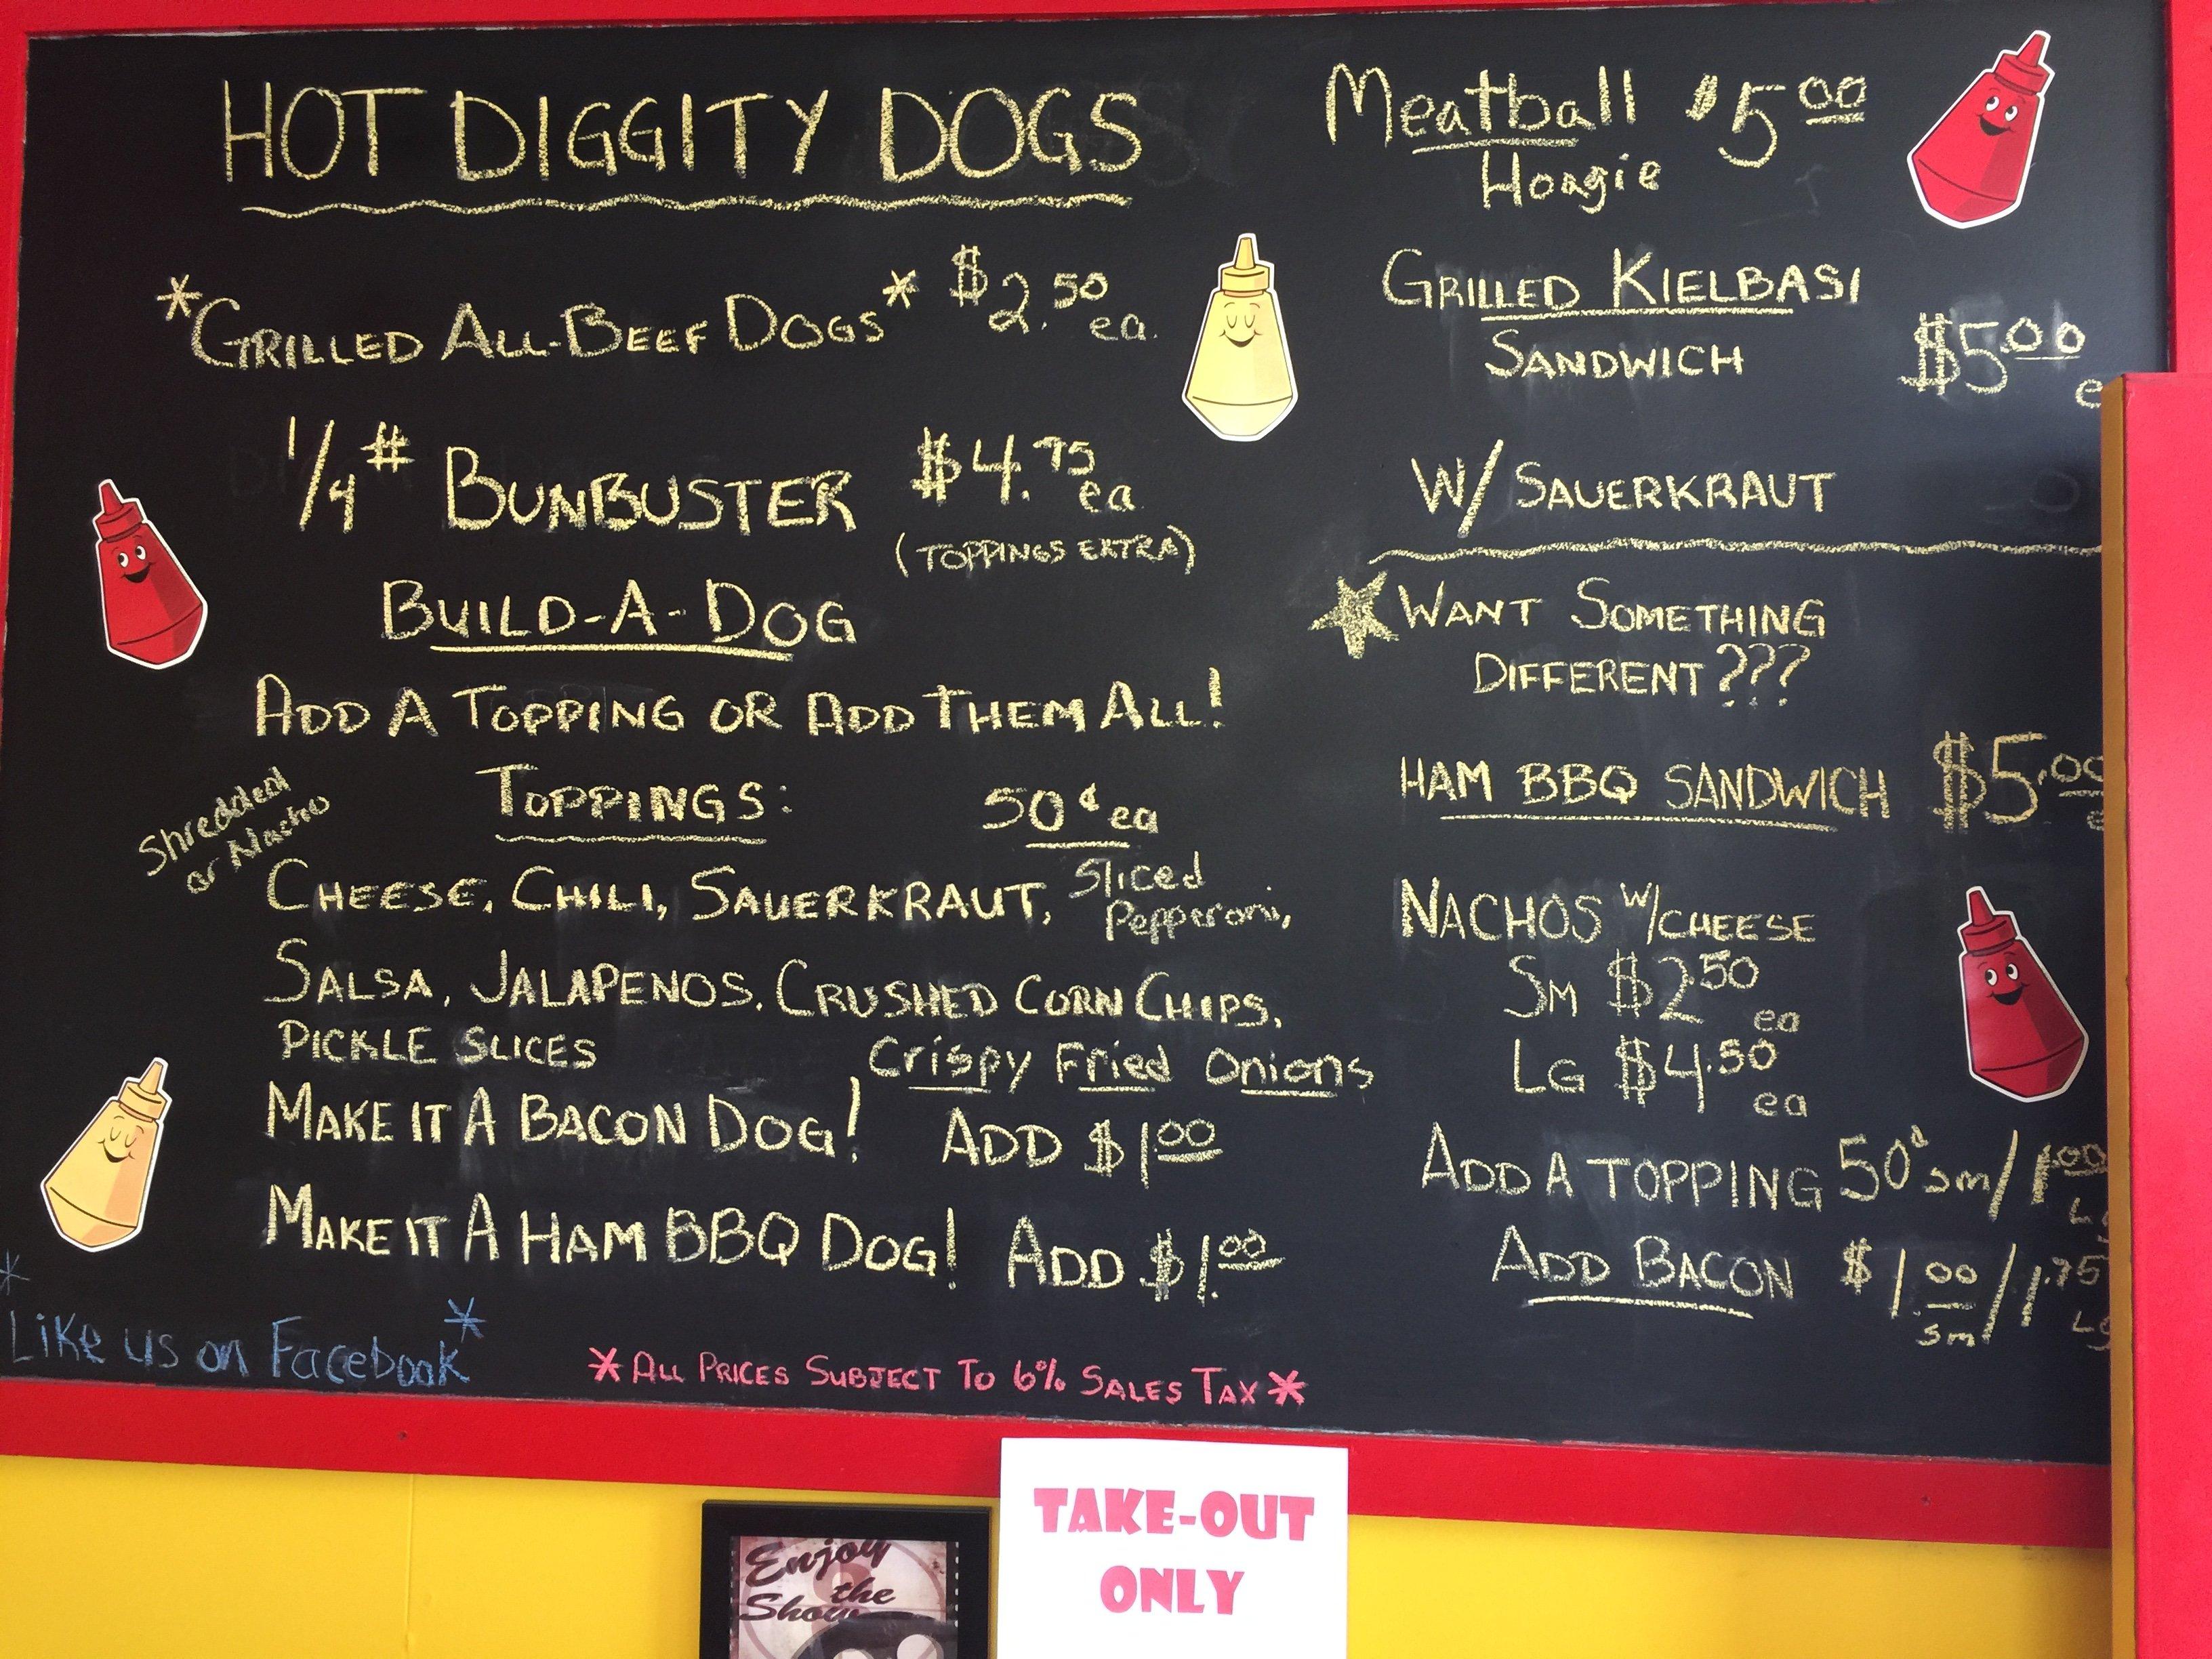 HOT DIGGITY DOGS
*GRILLED ALL-BEEF DOGS* $2.50 ea.
1/4# BUNBUSTER $4.75 ea
(TOPPINGS EXTRA)
BUILD-A-DOG
ADD A TOPPING OR ADD THEM ALL!
TOPPINGS: 50¢ ea
Shredded
or Nacho
CHEESE, CHILI, SAUERKRAUT, Sliced Pepperoni,
SALSA, JALAPENOS, CRUSHED CORN CHIPS,
PICKLE SLICES Crispy Fried Onions
MAKE IT A BACON DOG! ADD $1.00
MAKE IT A HAM BBQ DOG! ADD $1.00
*Like us on Facebook*
*ALL PRICES SUBJECT TO 6% SALES TAX*
Meatball $5.00
Hoagie
GRILLED KIELBASI
SANDWICH $5.00
W/ SAUERKRAUT
WANT SOMETHING
DIFFERENT???
HAM BBQ SANDWICH $5.00
NACHOS W/CHEESE
SM $2.50 ea
LG $4.50 ea
ADD A TOPPING 50¢ sm/1.00
ADD BACON $1.00 sm/1.75
TAKE-OUT
ONLY
Enjoy
the
Show